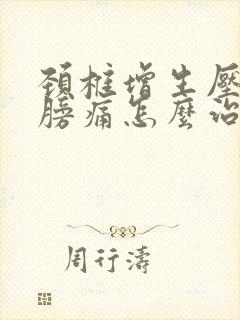 頚椎增生壓
膀痛怎麼治
周行濤